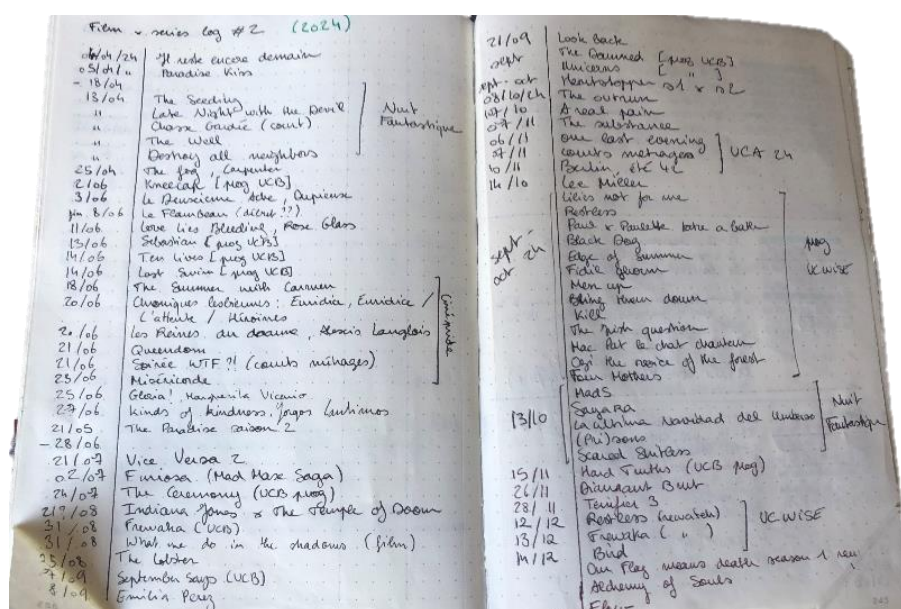 Film & series log #2 (2024)
04/04/24 Il reste encore demain
05/04/" Paradise Kiss
- 18/04
13/04 The Seeding
" Late Night with the Devil
" Chasse Gardée (court)
" The Well
" Destroy all neighbors
Nuit
Fantastique
25/04 The fog, Carpenter
2/06 Kneecap [prog UCB]
3/06 Le Deuxième Acte, Dupieux
8/06 Le Flambeau (décret ??)
11/06 Love Lies Bleeding, Rose Glass
13/06 Sebastian [prog UCB]
14/06 Ten Lives [prog UCB]
14/06 Last Swim [prog UCB]
18/06 The Summer with Carmen
20/06 Chroniques lesbiennes : Euridice, Euridice /
L'attente / Héroïnes
20/06 Les Reines du drame, Alexis Langlois
21/06 Queendom
21/06 Soirée WTF ?! (courts métrages)
23/06 Misericorde
Cinépride
25/06 Gloria! Margherita Vicario
27/06 Kinds of kindness, Yorgos Lanthimos
21/05 The Paradise saison 2
- 28/06
21/07 Vice Versa 2
02/07 Furiosa (Mad Max Saga)
24/07 The Ceremony (UCB prog)
21?/08 Indiana Jones & The Temple of Doom
31/08 Frewaka (UCB)
31/08 What we do in the shadows (film)
25/08 The lobster
/09 September Says (UCB)
8/09 Emilia Perez
21/09 Look Back
sept The Damned [prog UCB]
Unicorns [ " ]
sept-oct Heartstopper s1 & s2
08/10/24 The outrun
/10 A real pain
07/11 The substance
06/11 One last evening
07/11 courts métrages
UCA 24
10/11 Berlin, été 42
14/10 Lee Miller
sept -
oct 24
Lilies not for me
Restless
Paul & Paulette take a bath
Black Dog
Edge of Summer
Fidil Ghorm
Men up
Bring them down
Kill
The Irish question
Mac Pat le chat chanteur
Ozi the voice of the forest
Four Mothers
prog
UCWISE
13/10 MadS
Sayara
La ultima navidad del universo
(Pri)sons
Scared Shitless
Nuit
Fantastique
15/11 Hard Truths (UCB prog)
26/11 Diamant Brut
28/11 Terrifier 3
12/12 Restless (rewatch)
13/12 Frewaka ( " )
UCWISE
14/12 Bird
Our Flag means death season 1
Alchemy of Souls
245